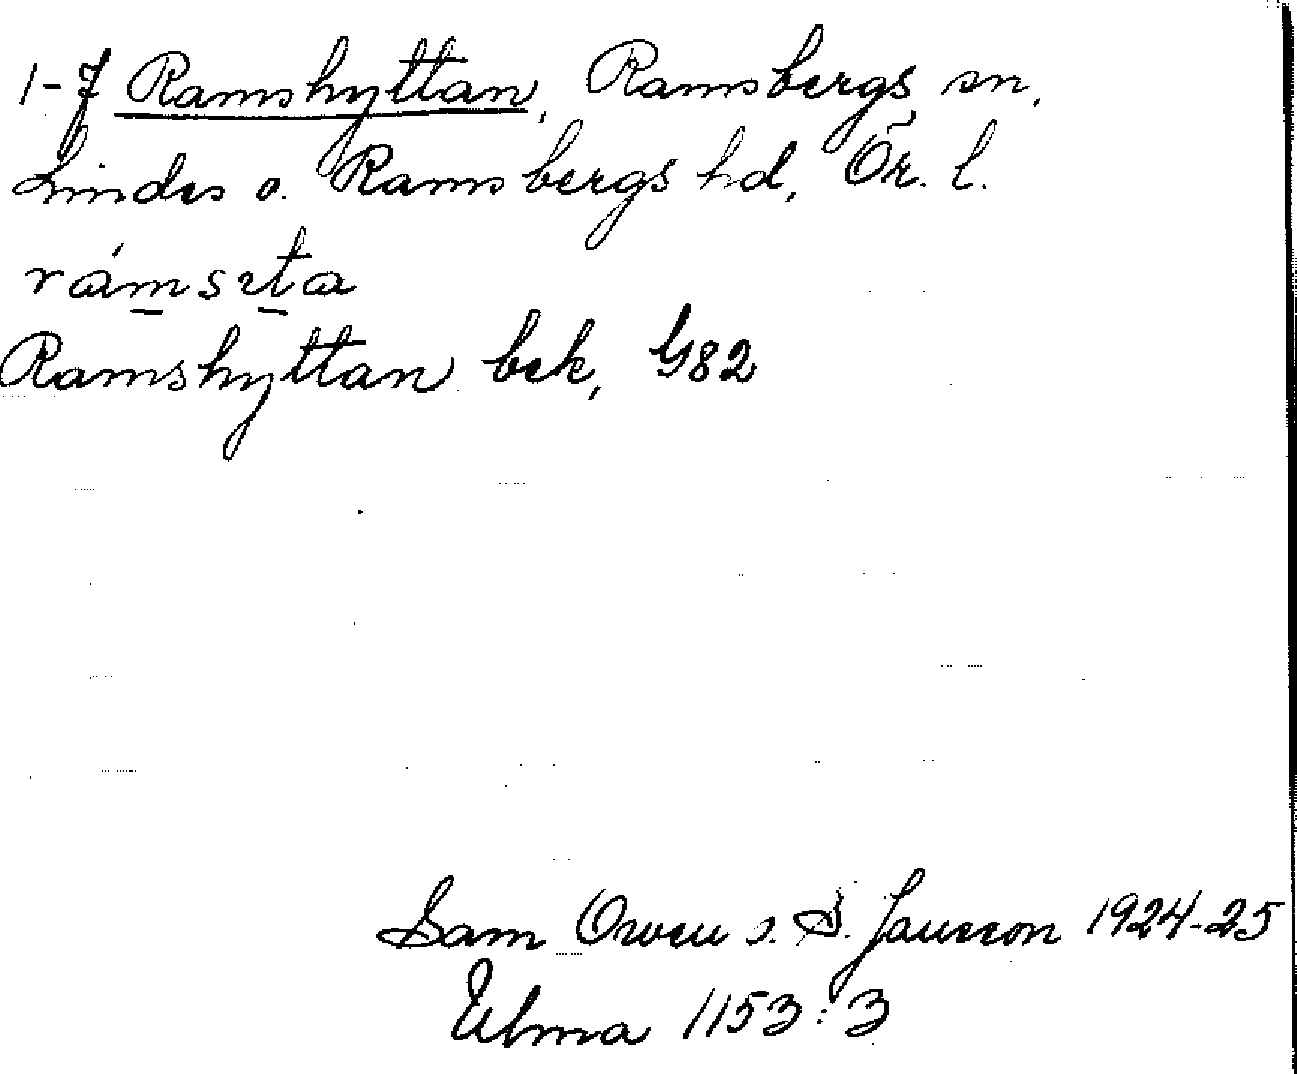 1-7 Ramshyttan, Ramsbergs sn,
Lindes o. Ramsbergs hd, Ör. l.
rámsxta
Ramshyttan bek, G82
Sam Owen o. S. Jansson 1924-25
Ulma 1153:3